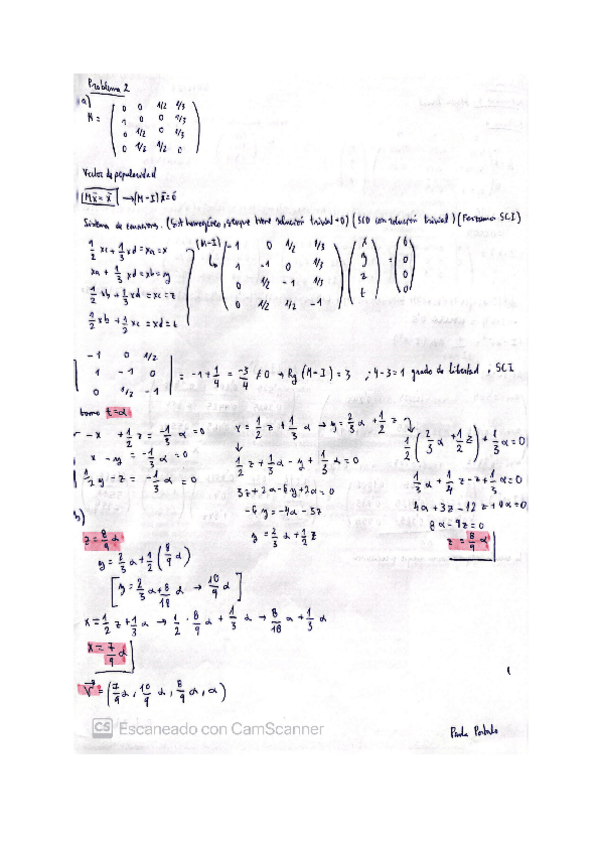 Problema 2
a)
M = ( 0 0 1/2 1/3
1 0 0 1/3
0 1/2 0 1/3
0 1/2 1/2 0 )
Vector de popularidad
Mx̄ = x̄ → (M-I) x̄ = ō
Sistema de ecuaciones. (Sist homogéneo, ya que tiene solución trivial = 0) (SCD con solución trivial) (Forzamos SCI)
1/2 xc + 1/3 xd = xa = x
xa + 1/3 xd = xb = y
1/2 xb + 1/3 xd = xc = z
1/2 xb + 1/2 xc = xd = t
(M-I) ( -1 0 1/2 1/3 ) ( x ) = ( 0 )
( 1 -1 0 1/3 ) ( y ) ( 0 )
( 0 1/2 -1 1/3 ) ( z ) ( 0 )
( 0 1/2 1/2 -1 ) ( t ) ( 0 )
| -1 0 1/2 |
| 1 -1 0 | = -1 + 1/4 = -3/4 ≠ 0 → Rg (M-I) = 3 ; 4-3 = 1 grado de libertad, SCI
| 0 1/2 -1 |
tomo t = α
-x + 1/2 z = -1/3 α = 0
x - y = -1/3 α = 0
1/2 y - z = -1/3 α = 0
x = 1/2 z + 1/3 α → y = 2/3 α + 1/2 z
↓
1/2 z + 1/3 α - y + 1/3 α = 0
3z + 2α - 6y + 2α = 0
-6y = -4α - 3z
y = 2/3 α + 1/2 z
1/2 ( 2/3 α + 1/2 z ) + 1/3 α = 0
1/3 α + 1/4 z - z + 1/3 α = 0
4α + 3z - 12z + 4α = 0
8α - 9z = 0
z = 8/9 α
b)
z = 8/9 α
y = 2/3 α + 1/2 ( 8/9 α )
[ y = 2/3 α + 8/18 α → 10/9 α ]
x = 1/2 z + 1/3 α → 1/2 · 8/9 α + 1/3 α → 8/18 α + 1/3 α
x = 7/9 α
V = ( 7/9 α, 10/9 α, 8/9 α, α )
CS Escaneado con CamScanner